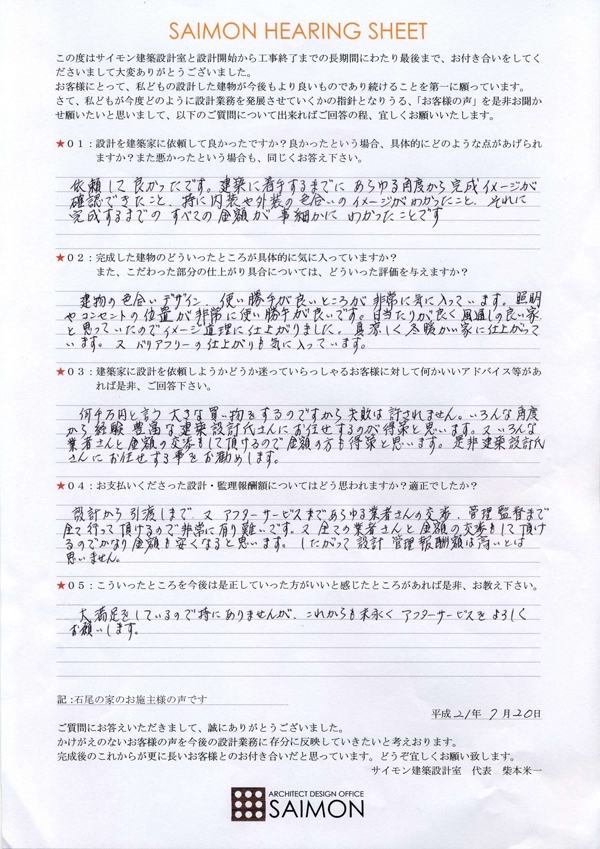 SAIMON HEARING SHEET
この度はサイモン建築設計室と設計開始から工事終了までの長期間にわたり最後まで、お付き合いをしてく
ださいまして大変ありがとうございました。
お客様にとって、私どもの設計した建物が今後もより良いものであり続けることを第一に願っています。
さて、私どもが今度どのように設計業務を発展させていくかの指針となりうる、「お客様の声」を是非お聞か
せ願いたいと思いまして、以下のご質問について出来ればご回答の程、宜しくお願いいたします。
★01：設計を建築家に依頼して良かったですか？良かったという場合、具体的にどのような点があげられ
ますか？また悪かったという場合も、同じくお答え下さい。
依頼して良かったです。建築に着手するまでに あらゆる角度から完成イメージが
確認できたこと、特に内装や外装の色合いのイメージがわかったこと、それに
完成するまでの すべての金額が 事細かに わかったことです
★02：完成した建物のどういったところが具体的に気に入っていますか？
また、こだわった部分の仕上がり具合については、どういった評価を与えますか？
建物の色合いデザイン、使い勝手が良いところが非常に気に入っています。照明
やコンセントの位置が非常に使い勝手が良いです。日当たりが良く風通しの良い家
と思っていたのでイメージ道理に仕上がりました。夏涼しく冬暖かい家に仕上がって
います。又 バリアフリーの仕上がりも気に入っています。
★03：建築家に設計を依頼しようかどうか迷っていらっしゃるお客様に対して何かいいアドバイス等があ
れば是非、ご回答下さい。
何千万円と言う 大きな買い物をするのですから失敗は許されません。いろんな角度
から経験豊富な建築設計氏さんにお任せするのが得策と思います。又いろんな
業者さんと金額の交渉もして頂けるので金額の方も得策と思います。是非建築設計氏
さんにお任せする事をお勧めします。
★04：お支払いくださった設計・監理報酬額についてはどう思われますか？適正でしたか？
設計から引渡しまで 又 アフターサービスまであらゆる業者さんの交渉、管理監督まで
全て行って頂けるので非常に有り難いです。又 全ての業者さんと金額の交渉もして頂け
るのでかなり金額も安くなると思います。したがって設計 管理報酬額は高いとは
思いません。
★05：こういったところを今後は是正していった方がいいと感じたところがあれば是非、お教え下さい。
大満足をしているので特にありませんが、これからも末永く アフターサービスを よろしく
お願いします。
記：石尾の家のお施主様の声です
平成21年 7月20日
ご質問にお答えいただきまして、誠にありがとうございました。
かけがえのないお客様の声を今後の設計業務に存分に反映していきたいと考えおります。
完成後のこれからが更に長いお客様とのお付き合いだと思っています。どうぞ宜しくお願い致します。
サイモン建築設計室　代表　柴本米一
ARCHITECT DESIGN OFFICE
SAIMON